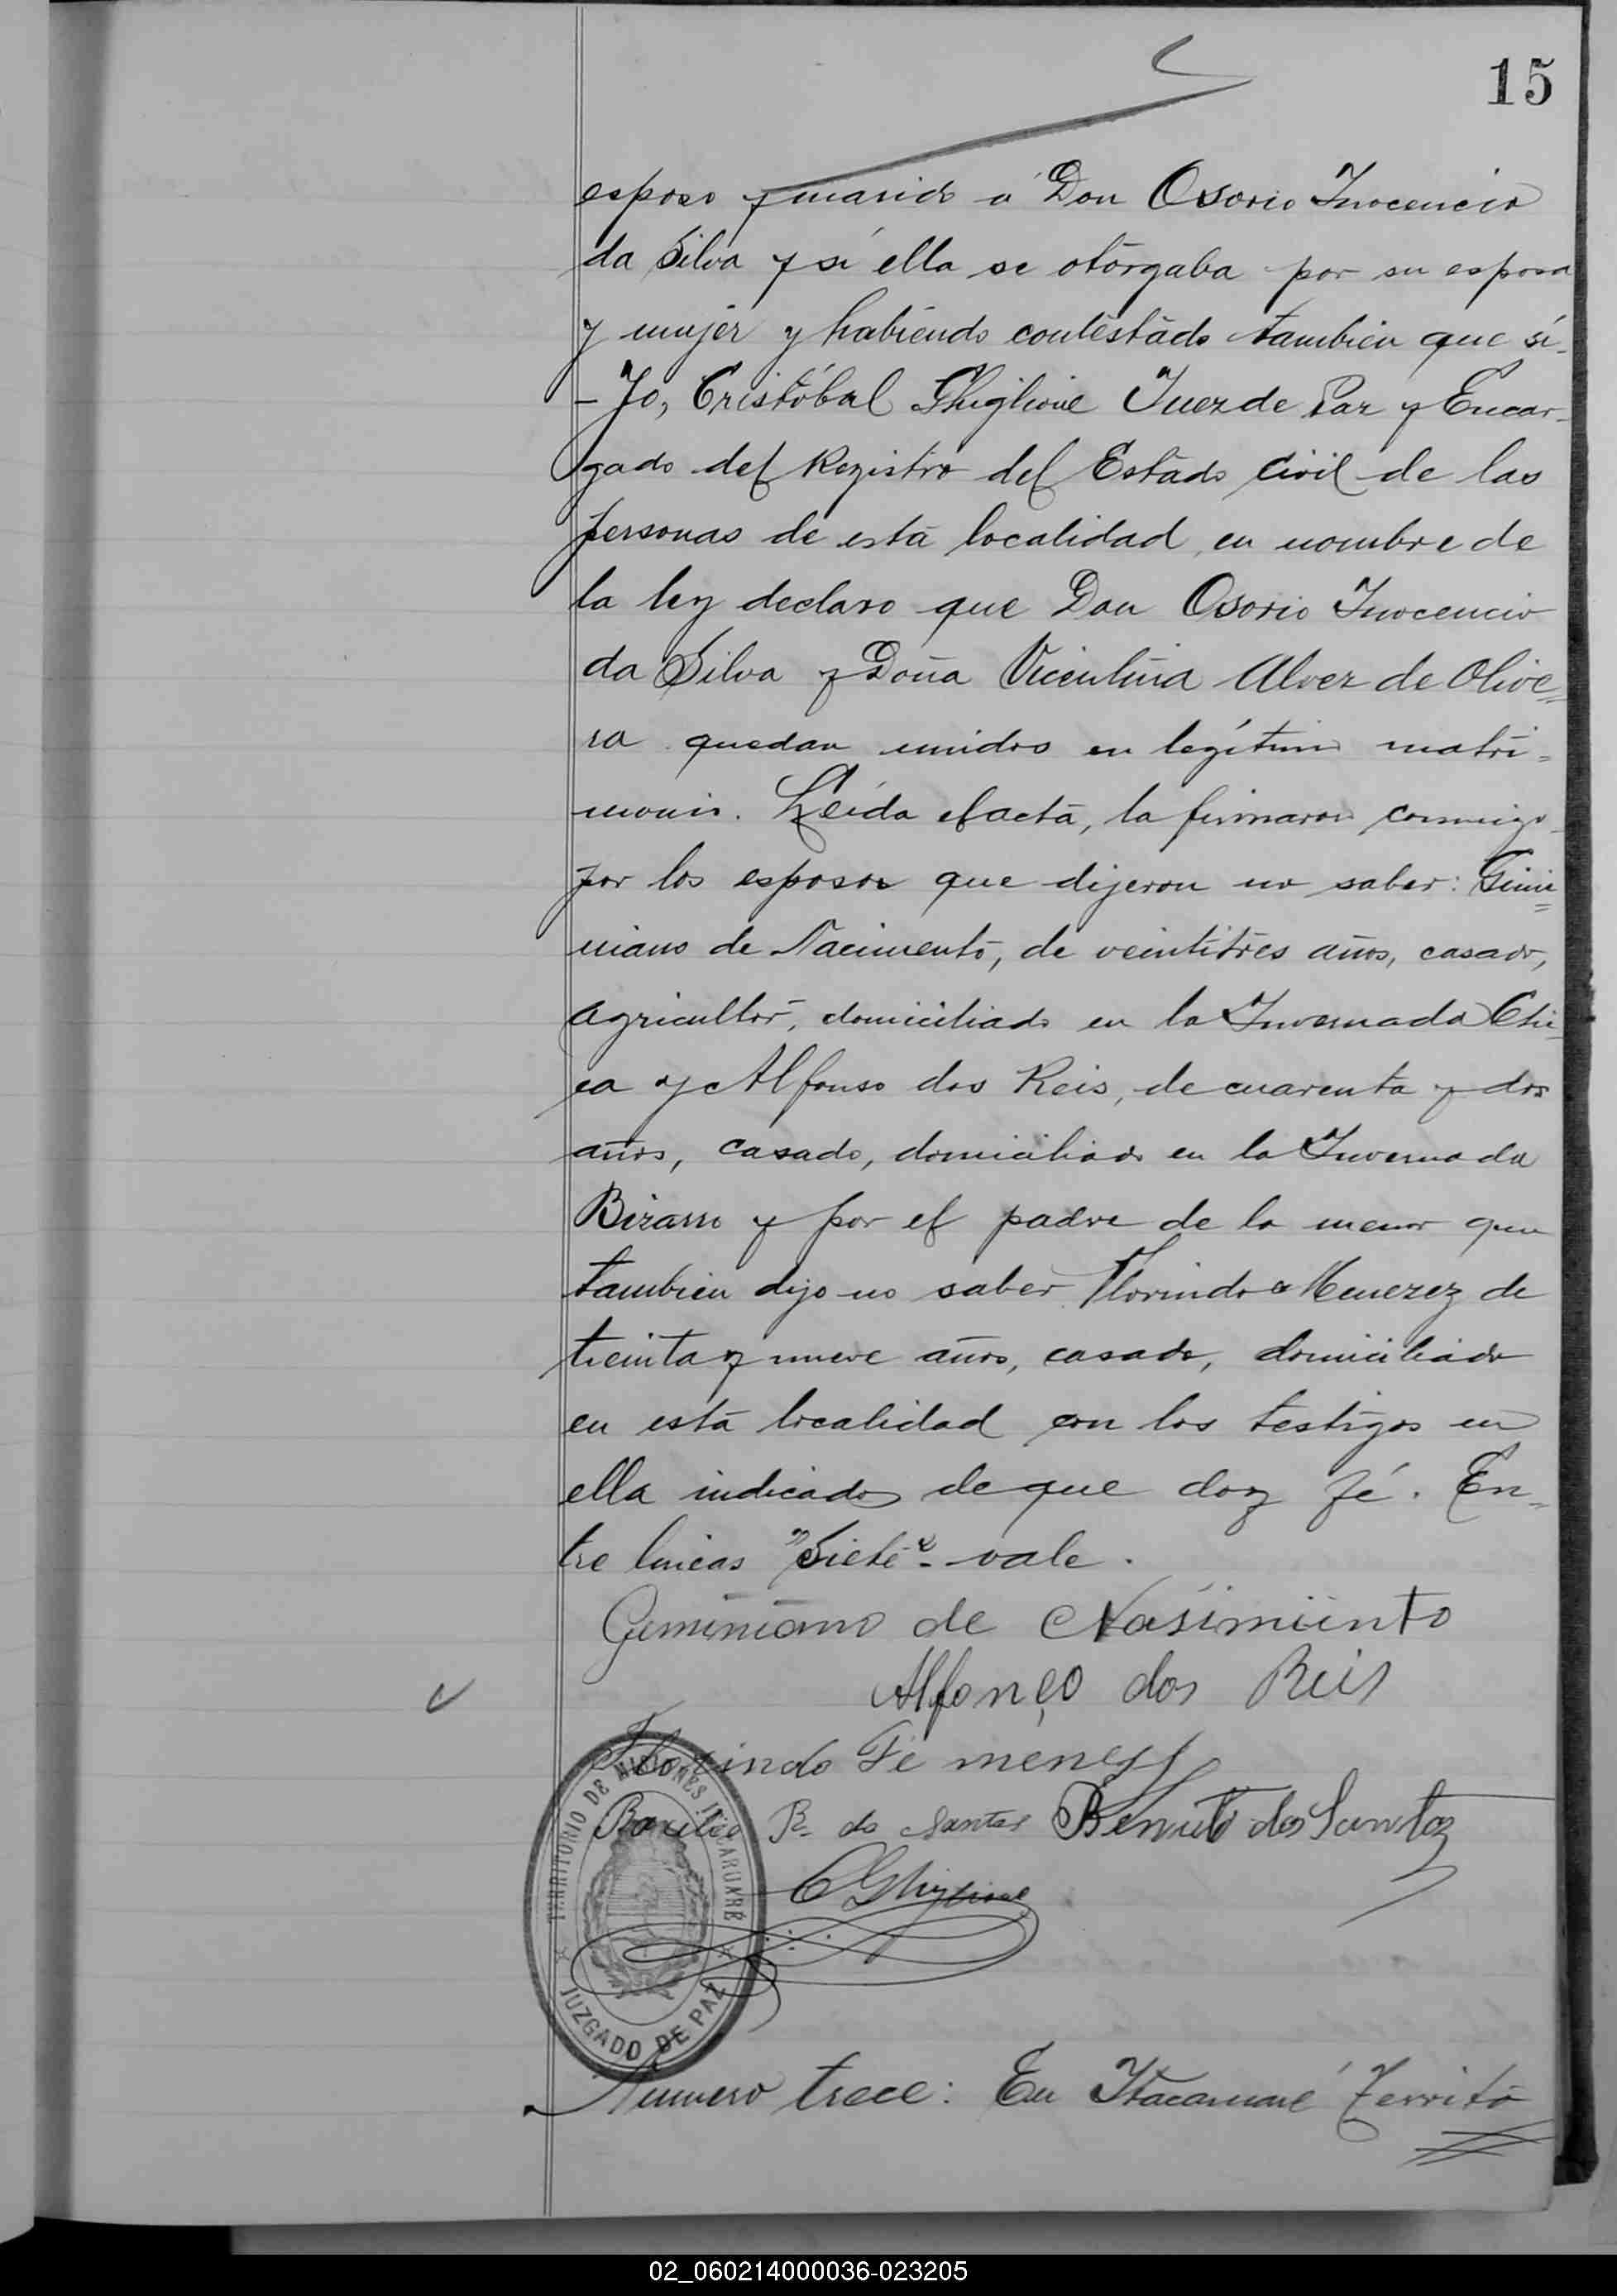 15
esposo y marido a Don Osorio Inocencio
da Silva y si ella se otorgaba por su esposa
y mujer y habiendo contestado tambien que si.
- Yo, Cristóbal Ghiglione Juez de Paz y Encar-
gado del Registro del Estado Civil de las
personas de esta localidad, en nombre de
la ley declaro que Don Osorio Inocencio
da Silva y Doña Vicentina Alvez de Olive=
ra quedan unidos en legítimo matri=
monio. Leída el acta, la firmaron conmigo
por los esposos que dijeron no saber: Gimi=
niano de Nacimento, de veintitres años, casado,
agricultor, domiciliado en la Invernada Chi=
ca y Alfonso dos Reis, de cuarenta y dos
años, casado, domiciliado en la Invernada
Bizarro y por el padre de la menor que
tambien dijo no saber Florindo Menezez de
treinta y nueve años, casado, domiciliado
en esta localidad con los testigos en
ella indicados de que doy fé. En=
tre lineas "Siete" - vale.
Geminiano de Nasimiento
Alfonço dos Reis
Florindo De
R. do Santos Benuto dos Santoz
C Ghiglione
TERRITORIO DE MISIONES ITACARUARÉ
JUZGADO DE PAZ
Numero trece: En Itacaruaré Territo=
02_060214000036-023205